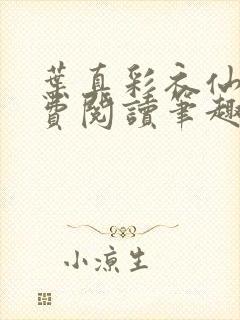 葉真彩衣仙
費閱讀筆趣
小涼生